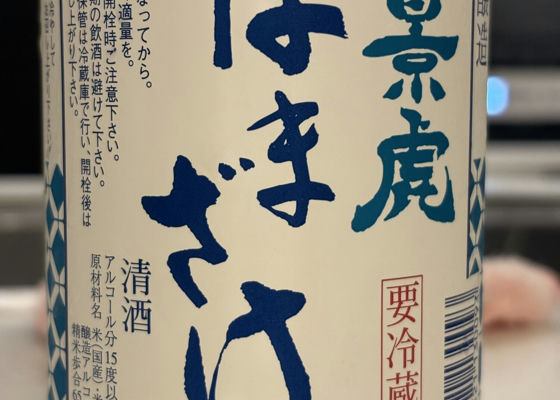 醸造
景虎
要冷蔵
はまざけ
清酒
アルコール分 15度以
原材料名 米(国産)・米
醸造アルコ
精米歩合65
なってから。
適量を。
開栓時ご注意下さい。
期の飲酒は避けて下さい。
保管は冷蔵庫で行い、開栓後は
し上がり下さい。